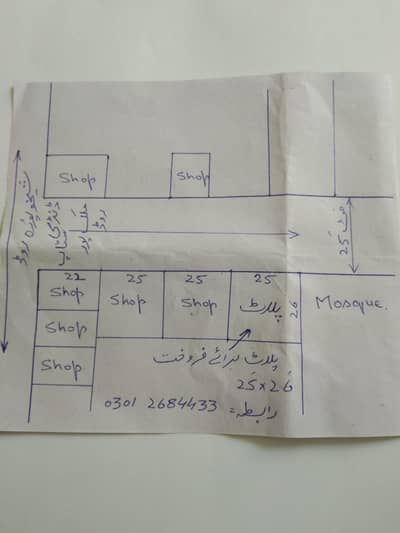 Shop
Shop
شیخوپورہ روڈ
سٹاپ
روڈ
25 فٹ
22
25
25
25
Shop
Shop
Shop
پلاٹ
26
Mosque.
Shop
Shop
پلاٹ برائے فروخت
25 x 26
رابطہ = 0301 2684433